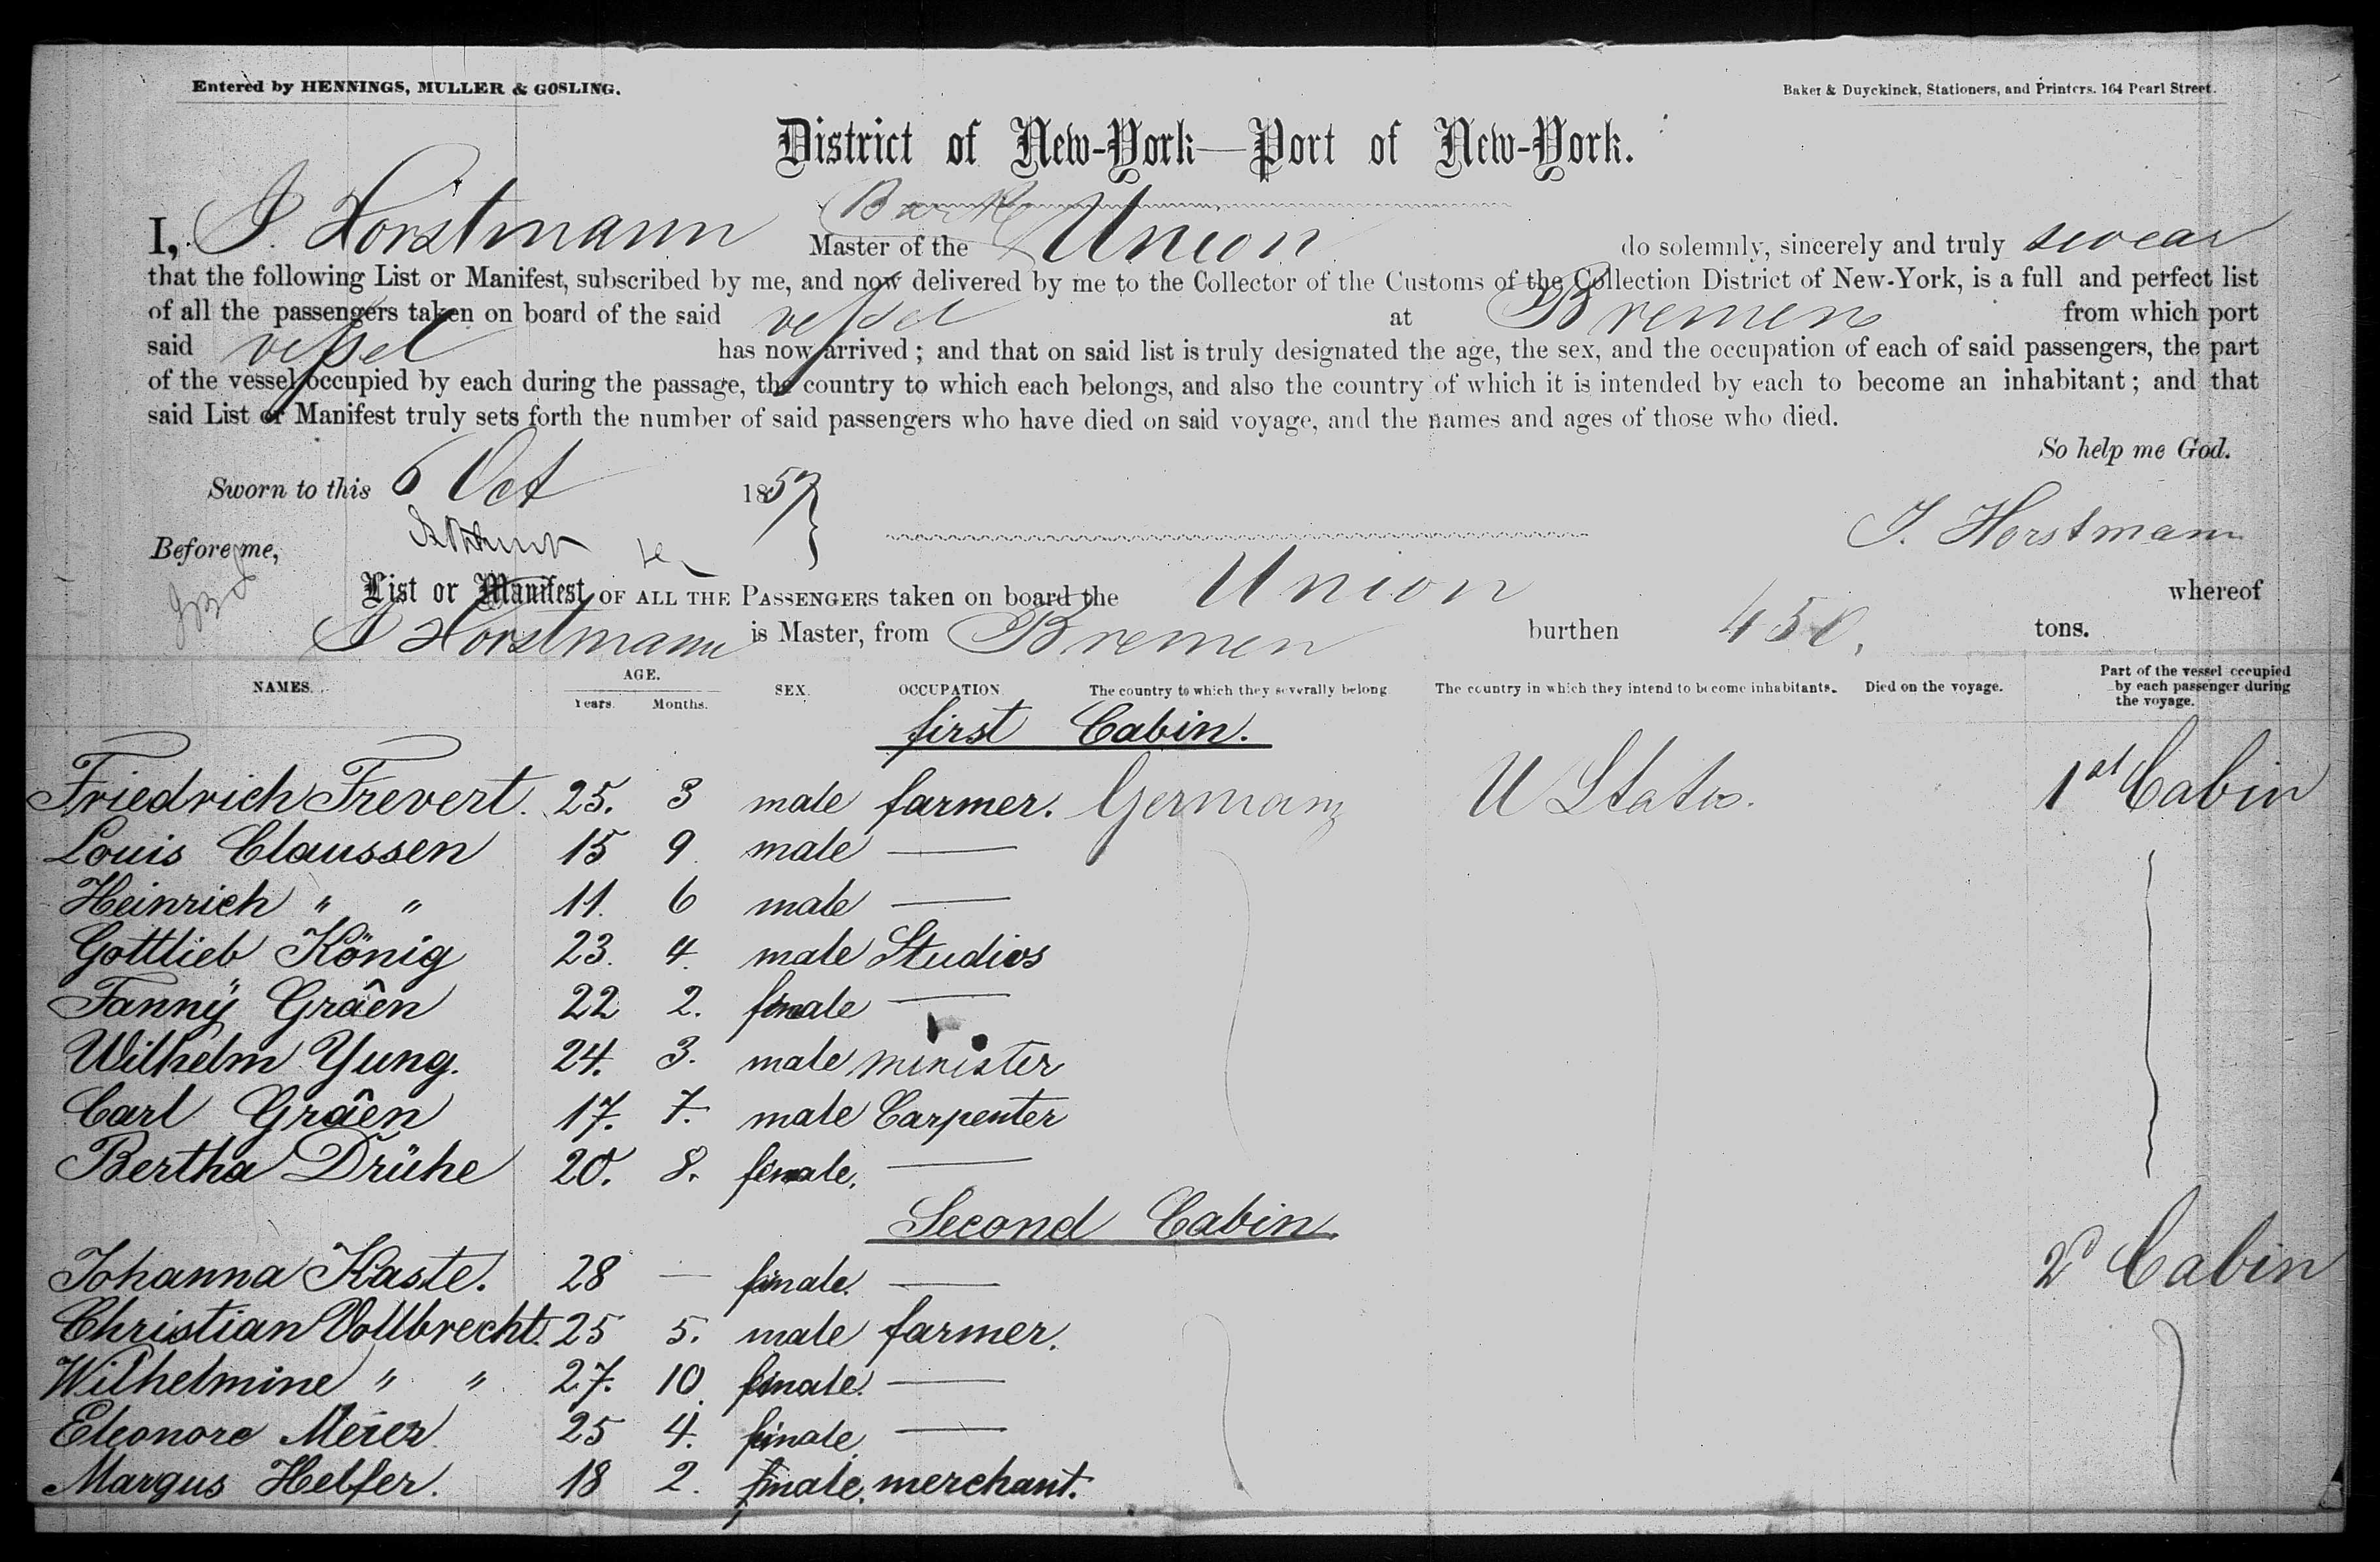 Entered by HENNINGS, MULLER & GOSLING.
Baker & Duyckinck, Stationers, and Printers. 164 Pearl Street.
District of New-York—Port of New-York.
Bark
I, J. Horstmann Master of the Union do solemnly, sincerely and truly swear
that the following List or Manifest, subscribed by me, and now delivered by me to the Collector of the Customs of the Collection District of New-York, is a full and perfect list
of all the passengers taken on board of the said vessel at Bremen from which port
said vessel has now arrived; and that on said list is truly designated the age, the sex, and the occupation of each of said passengers, the part
of the vessel occupied by each during the passage, the country to which each belongs, and also the country of which it is intended by each to become an inhabitant; and that
said List or Manifest truly sets forth the number of said passengers who have died on said voyage, and the names and ages of those who died.
So help me God.
Sworn to this 6 Oct 1857
J. Horstmann
Before me,
List or Manifest OF ALL THE PASSENGERS taken on board the Union whereof
J Horstmann is Master, from Bremen burthen 450. tons.
NAMES. AGE. Years. Months. SEX. OCCUPATION. The country to which they severally belong. The country in which they intend to become inhabitants. Died on the voyage. Part of the vessel occupied by each passenger during the voyage.
first Cabin.
Friedrich Frevert. 25. 3 male farmer. Germany U States. 1st Cabin
Louis Claussen 15 9 male —
Heinrich " " 11. 6 male —
Gottlieb König 23. 4. male Studios
Fannÿ Grâen 22 2. female —
Wilhelm Yung. 24. 3. male minister
Carl Grâen 17. 7. male Carpenter
Bertha Drühe 20. 8. female. —
Second Cabin.
Johanna Kaste. 28 — female. — 2d Cabin
Christian Vollbrecht. 25 5. male farmer.
Wilhelmine " " 27. 10. female. —
Eleonore Meier 25 4. female. —
Margus Helfer. 18 2. female. merchant.